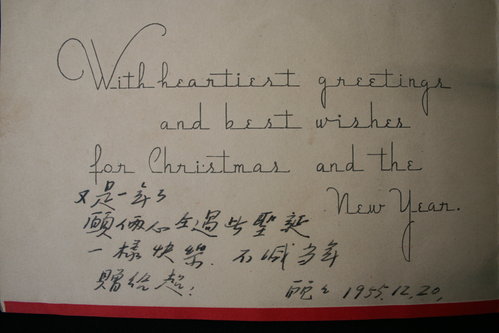 With heartiest greetings
and best wishes
for Christmas and the
New Year.
又是一年了
願倆心 過此聖誕
一樣快樂. 不減當年
贈給超.
1955.12.20.